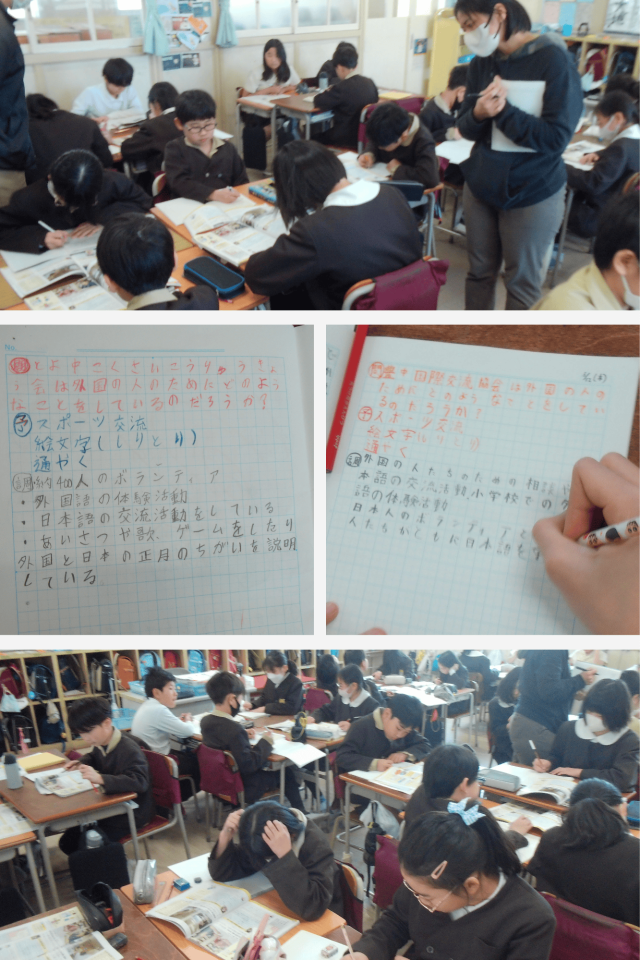 No.
とよ中こくさいこうりゅうきょ
う会は外国の人のためにどのよう
なことをしているのだろうか?
予 スポーツ交流
絵文字(しりとり)
通やく
調 約400人のボランティア
・外国語の体験活動
・日本語の交流活動をしている
・あいさつや歌、ゲームをしたり
外国と日本の正月のちがいを説明
している
中国際交流協会は外国の人の
ためにどのようなことをしてい
るのだろうか?
予 スポーツ交流
絵文字(しりとり)
通やく
調 外国の人たちのための相談
本語の交流活動、小学校での
語の体験活動
日本人のボランティア
人たちがともに日本語を